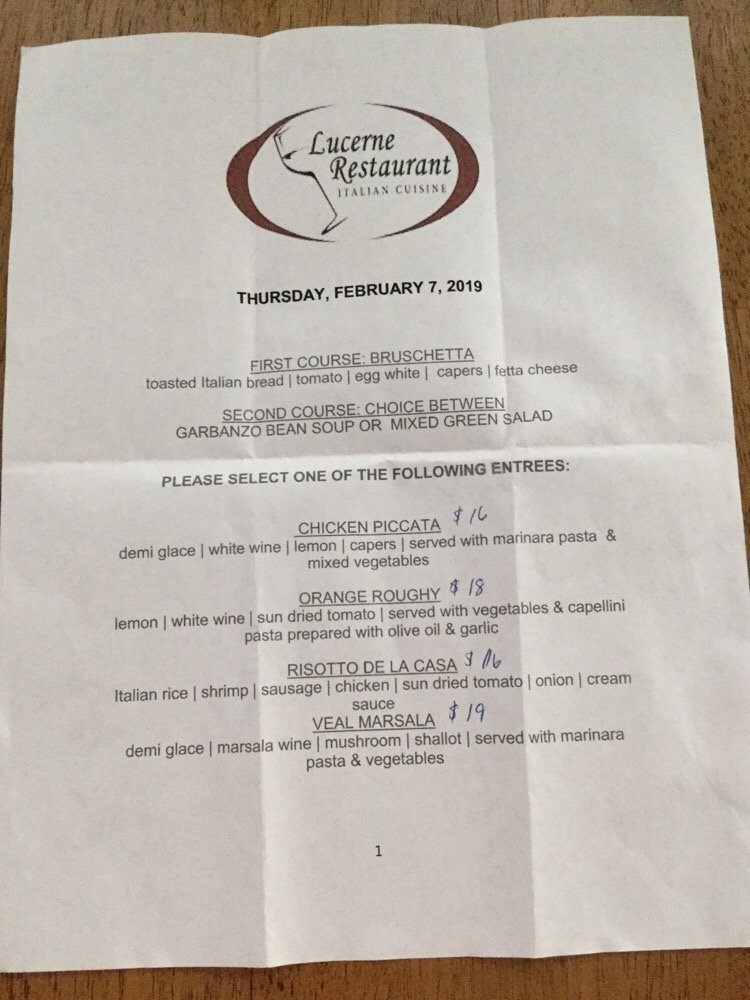 Lucerne
Restaurant
ITALIAN CUISINE
THURSDAY, FEBRUARY 7, 2019
FIRST COURSE: BRUSCHETTA
toasted Italian bread | tomato | egg white | capers | fetta cheese
SECOND COURSE: CHOICE BETWEEN
GARBANZO BEAN SOUP OR MIXED GREEN SALAD
PLEASE SELECT ONE OF THE FOLLOWING ENTREES:
CHICKEN PICCATA $16
demi glace | white wine | lemon | capers | served with marinara pasta &
mixed vegetables
ORANGE ROUGHY $18
lemon | white wine | sun dried tomato | served with vegetables & capellini
pasta prepared with olive oil & garlic
RISOTTO DE LA CASA $16
Italian rice | shrimp | sausage | chicken | sun dried tomato | onion | cream
sauce
VEAL MARSALA $19
demi glace | marsala wine | mushroom | shallot | served with marinara
pasta & vegetables
1